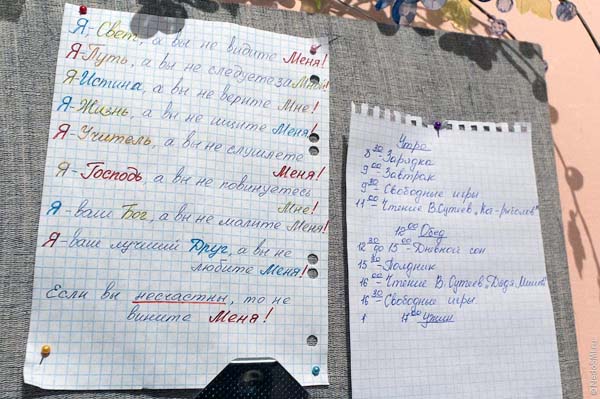 Я-Свет, а вы не видите Меня!
Я-Путь, а вы не следуете за Мной!
Я-Истина, а вы не верите Мне!
Я-Жизнь, а вы не ищите Меня!
Я-Учитель, а вы не слушаете
Меня!
Я-Господь, а вы не повинуетесь
Мне!
Я-ваш Бог, а вы не молите Меня!
Я-ваш лучший Друг, а вы не
любите Меня!
Если вы несчастны, то не
вините Меня!
Утро
8 30 - Зарядка
9 00 - Завтрак
9 30 - Свободные игры
11 00 - Чтение В.Сутеев
12 00 Обед
12 30 до 15 00 - Дневной сон
15 30 - Полдник
16 00 - Чтение В. Сутеев „Дядя Миша"
16 30 - Свободные игры
17 00 ужин